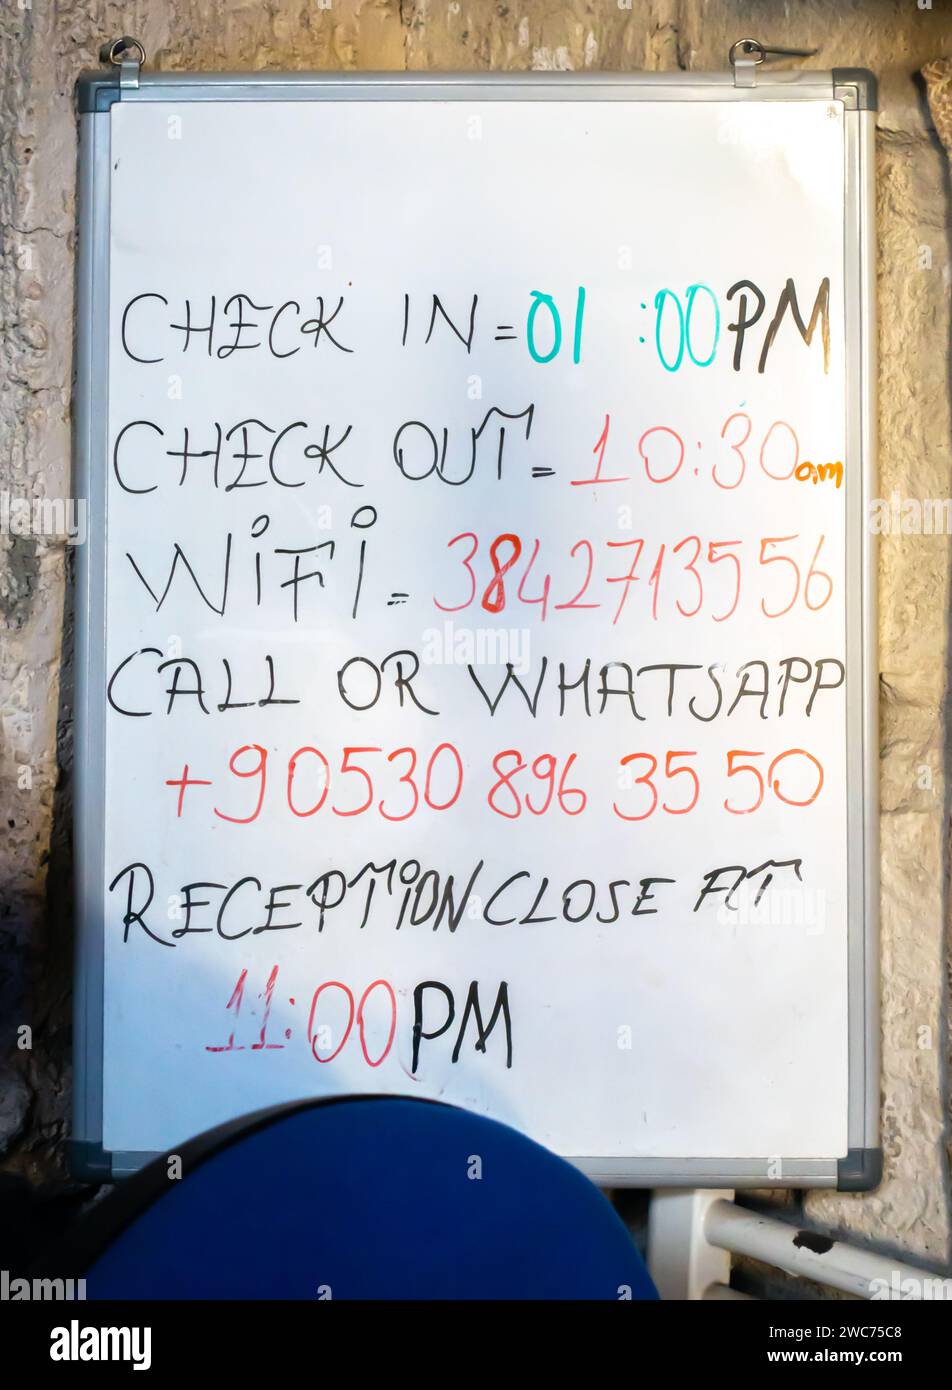 CHECK IN = 01 :00 PM
CHECK OUT = 10:30 am
WiFi = 38427135556
CALL OR WHATSAPP
+90530 896 35 50
RECEPTiON CLOSE AT
11:00 PM
alamy
Image ID: 2WC75C8
www.alamy.com